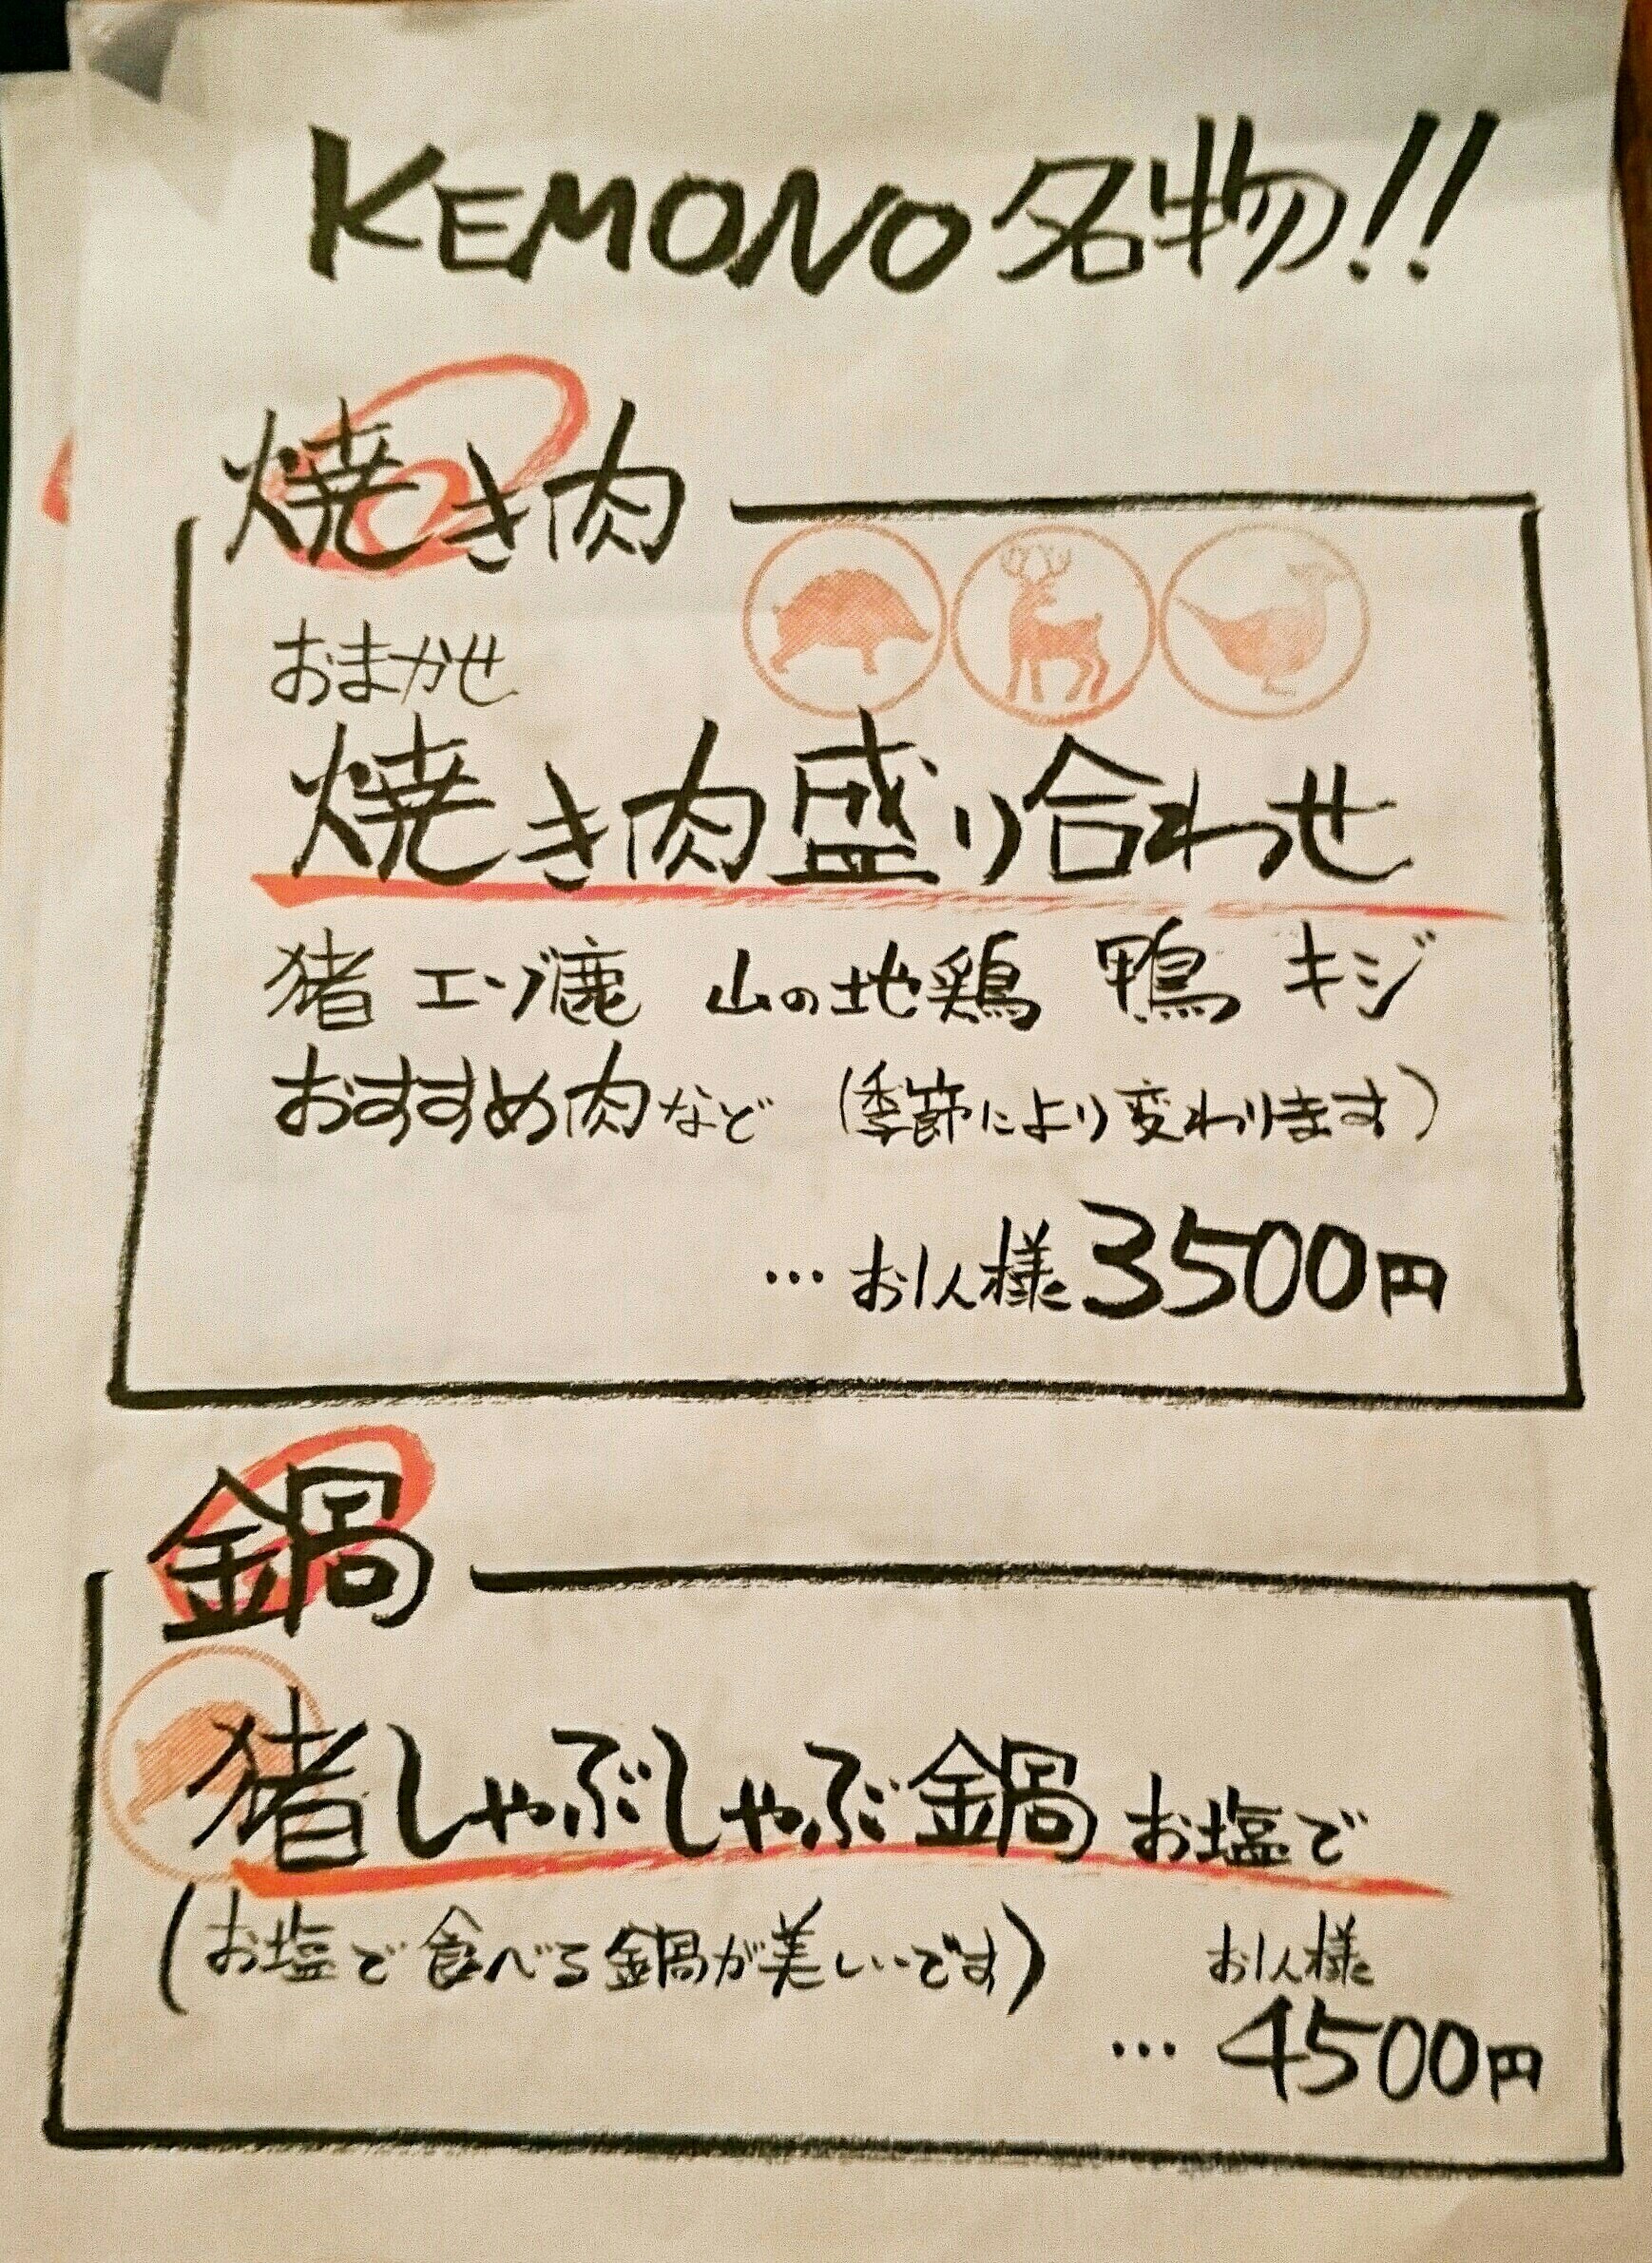 KEMONO名物!!
焼き肉
おまかせ
焼き肉盛り合わせ
猪 エゾ鹿 山の地鶏 鴨 キジ
おすすめ肉など (季節により変わります)
…お1人様3500円
鍋
猪しゃぶしゃぶ鍋 お塩で
(お塩で食べる鍋が美しいです)
お1人様
…4500円